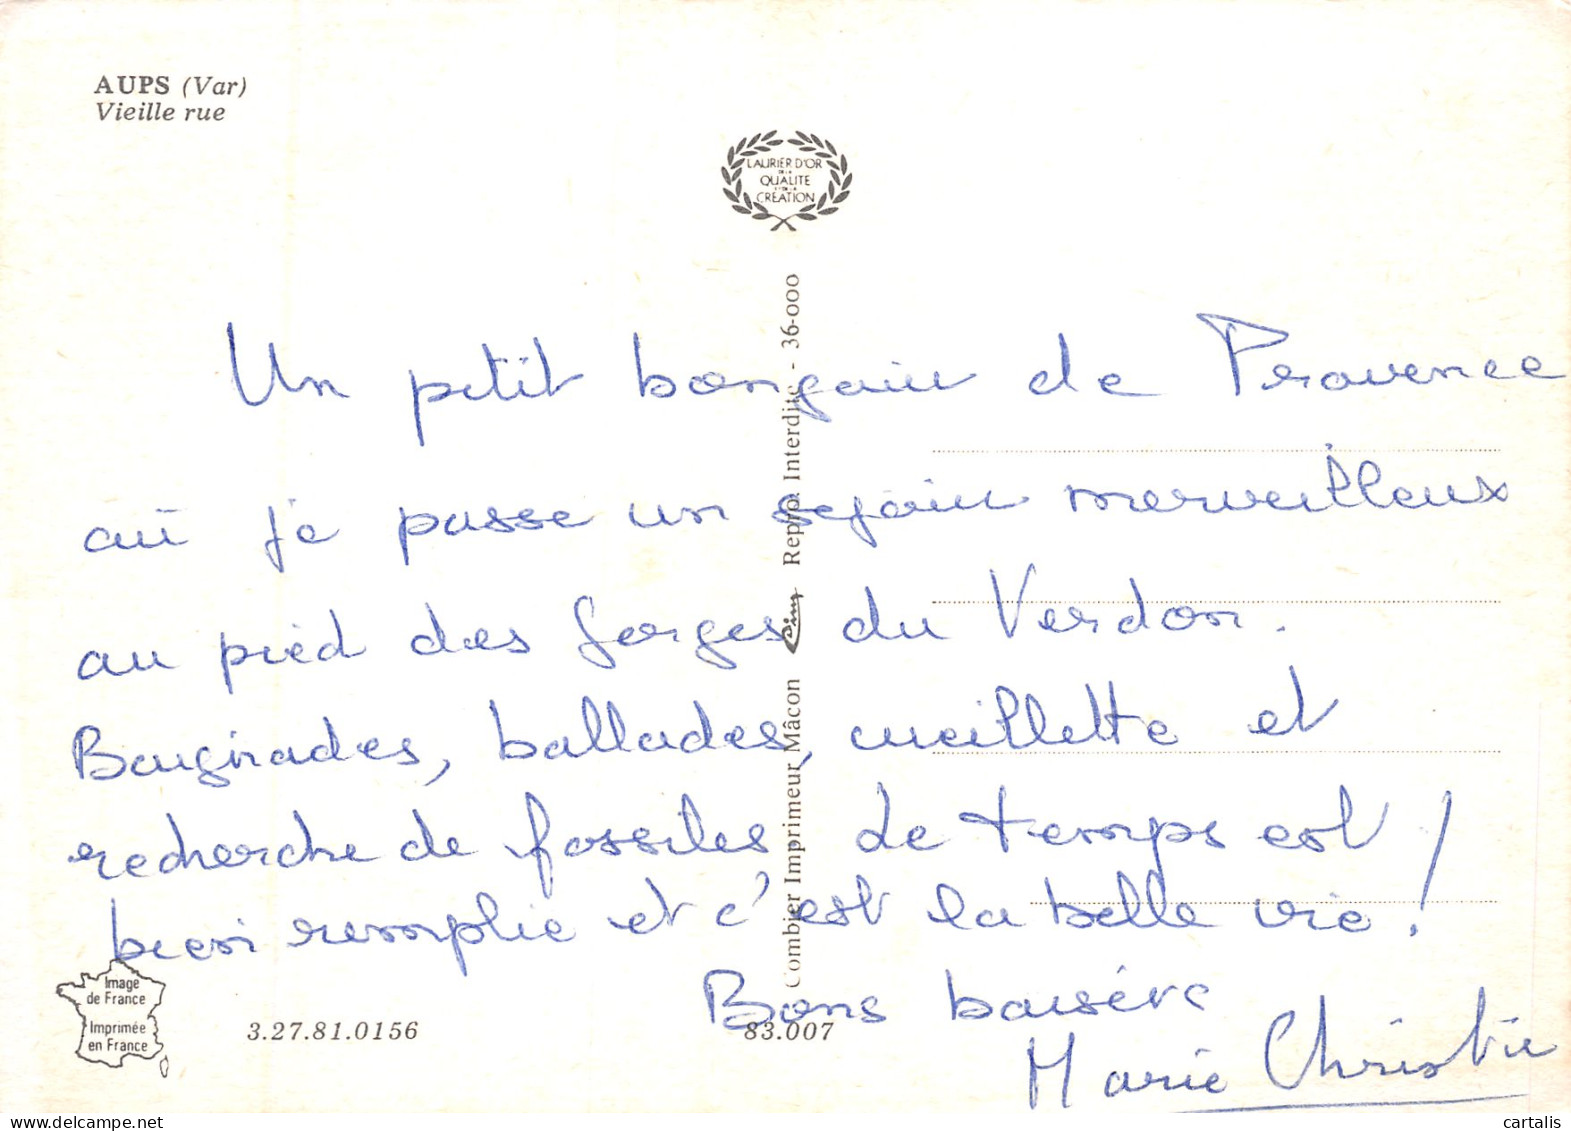 AUPS (Var)
Vieille rue
LAURIER D'OR
DE LA
QUALITE
ET DE LA
CREATION
Un petit bonjour de Provence
où je passe un sejour merveilleux
au pied des gorges du Verdon.
Baignades, ballades, cueillette et
recherche de fossiles. Le temps est
bien remplie et c'est la belle vie !
Bons baisers
Marie Christie
Combier Imprimeur Mâcon Cim Repro. Interdite - 36-000
Image
de France
Imprimée
en France
3.27.81.0156
83.007
cartalis